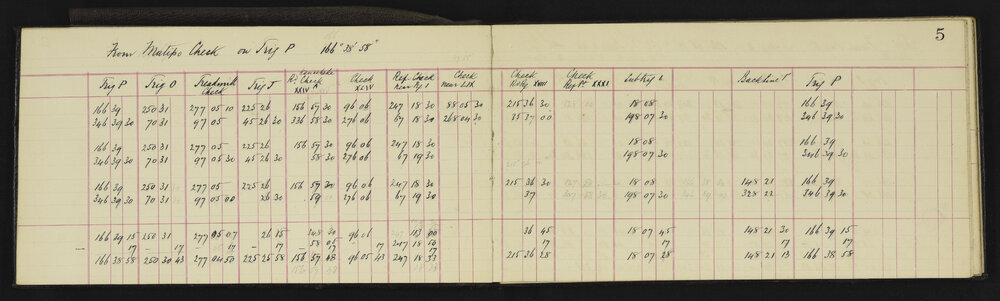 5
From Matipo Check on Trig P 166° 38' 58"
Trig P Trig O Treadwell Check Trig J Concrete Rd Check XXIV Check XLIV Ref. Check near Trig 1 Check near LIX Check XVIII Check XXXI Subtrig L Backline T Trig P
166 39 250 31 277 05 10 225 26 156 59 30 96 06 247 18 30 88 05 30 215 36 30 18 08 166 39
346 39 30 70 31 97 05 45 26 30 336 58 30 276 06 67 18 30 268 04 30 35 37 00 198 07 30 346 39 30
166 39 250 31 277 05 225 26 156 59 30 96 06 247 18 30 18 08 166 39
346 39 30 70 31 97 05 30 45 26 30 58 30 276 06 67 19 30 198 07 30 346 39 30
166 39 250 31 277 05 225 26 156 59 30 96 06 247 18 30 215 36 30 18 08 148 21 166 39
346 39 30 70 31 97 05 00 26 30 59 276 06 67 19 30 37 198 07 30 328 22 346 39 30
166 39 15 250 31 277 05 07 26 15 96 06 36 45 18 07 45 148 21 30 166 39 15
17 17 17 17 17 17 17 17 17 17
166 38 58 250 30 43 277 04 50 225 25 58 96 05 43 247 18 33 215 36 28 18 07 28 148 21 13 166 38 58